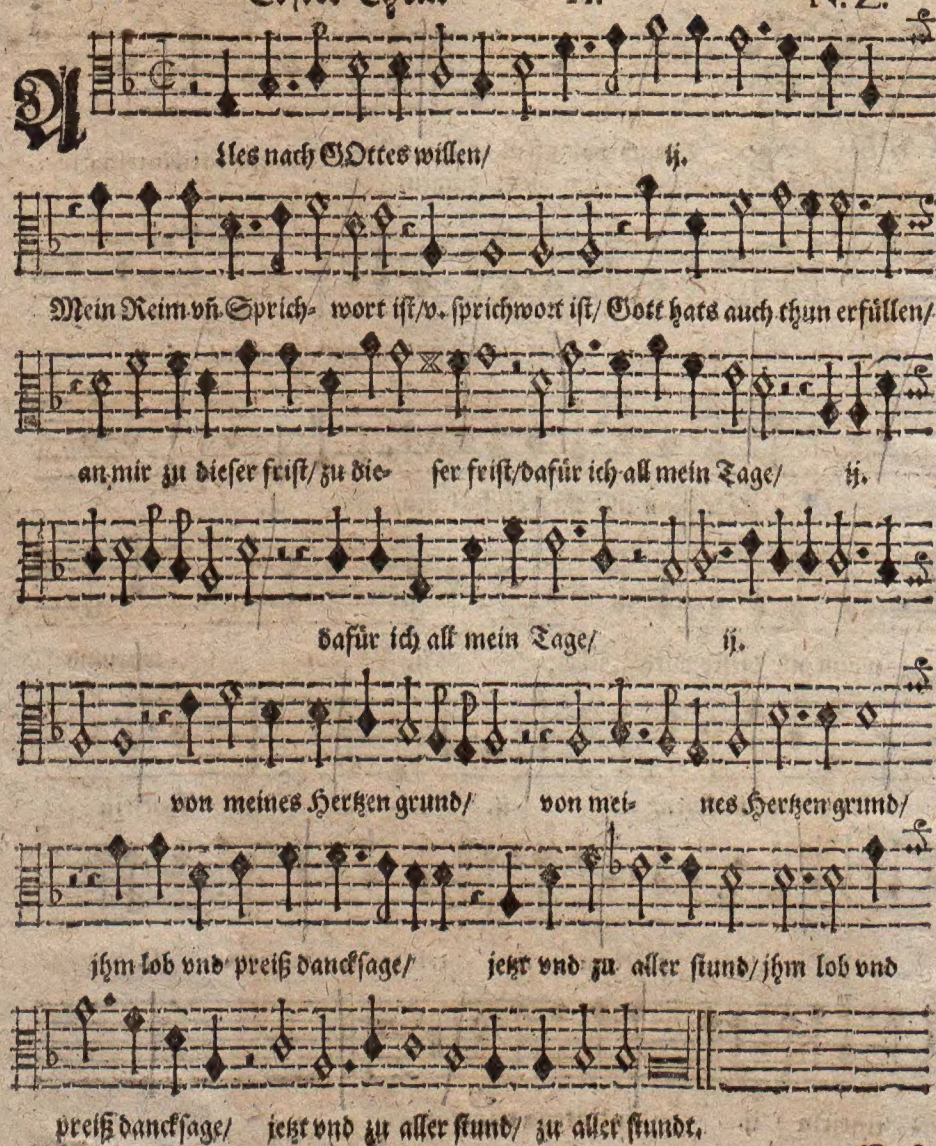 N. 2.
Alles nach GOttes willen/ ij.
Mein Reim vñ Sprich- wort ist/v. sprichwort ist/ Gott hats auch thun erfüllen/
an mir zu dieser frist/ zu die- ser frist/dafür ich all mein Tage/ ij.
dafür ich all mein Tage/ ij.
von meines Hertzen grund/ von mei- nes Hertzen grund/
jhm lob vnd preiß danck sage/ jetzt vnd zu aller stund/ jhm lob vnd
preiß danck sage/ jetzt vnd zu aller stund/ zu aller stundt.